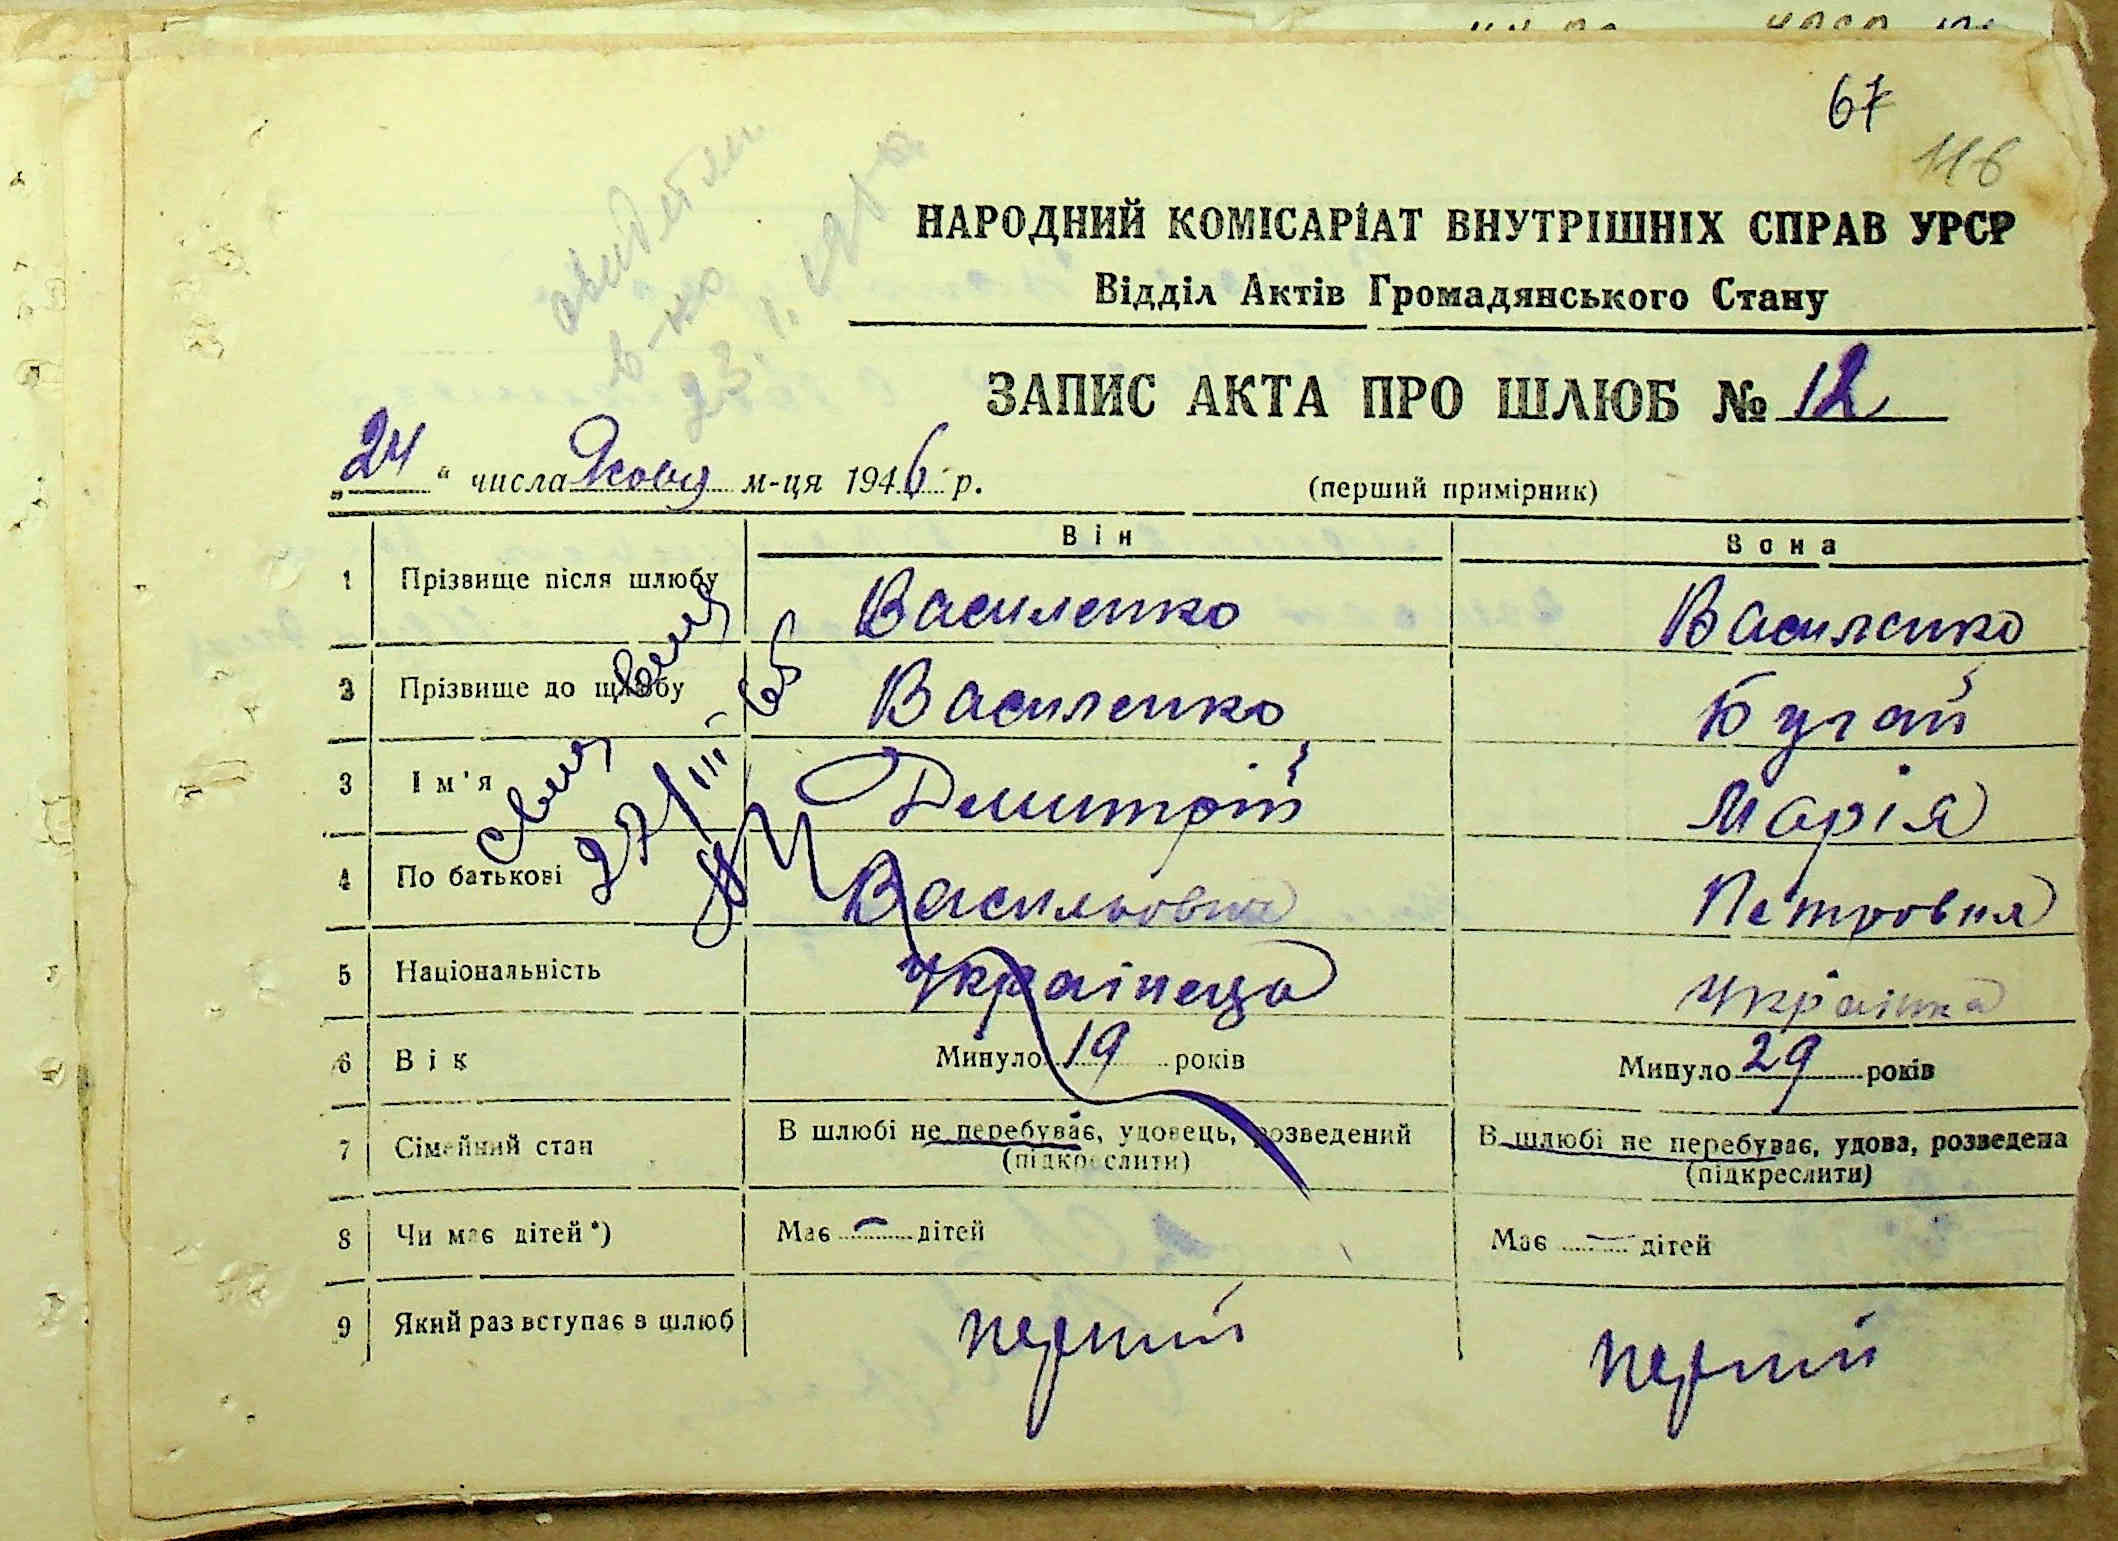 67
116
НАРОДНИЙ КОМІСАРІАТ ВНУТРІШНІХ СПРАВ УРСР
Відділ Актів Громадянського Стану
ЗАПИС АКТА ПРО ШЛЮБ № 12
„24“ числа м-ця 1946 р. (перший примірник)
Він Вона
1 Прізвище після шлюбу Василенко Василенко
2 Прізвище до шлюбу Василенко Бугай
3 Ім'я Дмитрій Марія
4 По батькові Васильович Петровня
5 Національність Українець Українка
6 Вік Минуло 19 років Минуло 29 років
7 Сімейний стан В шлюбі не перебуває, удовець, розведений В шлюбі не перебуває, удова, розведена
(підкреслити) (підкреслити)
8 Чи має дітей*) Має — дітей Має — дітей
9 Який раз вступає в шлюб перший перший
27/III-65